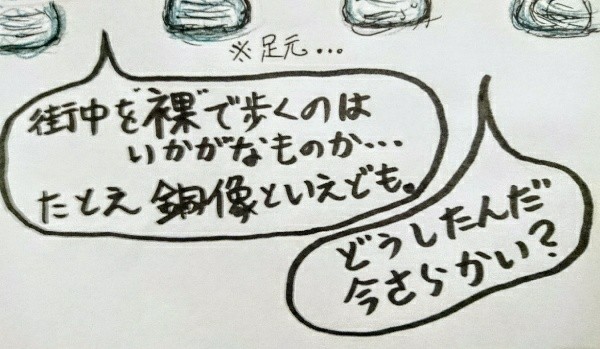 ※足元…
街中を裸で歩くのは
いかがなものか…
たとえ銅像といえども。
どうしたんだ
今さらかい?